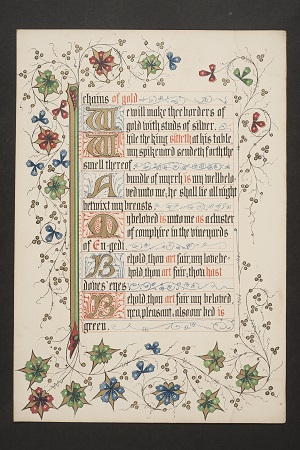 chains of gold
We will make thee borders of
gold with studs of silver.
While the king sitteth at his table,
my spikenard sendeth forth the
smell thereof
A bundle of myrrh is my wellbelo-
ved unto me; he shall lie all night
betwixt my breasts
My beloved is unto me as a cluster
of camphire in the vineyards
of En-gedi.
Behold thou art fair, my love be-
hold thou art fair, thou hast
doves' eyes
Behold thou art fair my beloved,
yea, pleasant, also our bed is
green.